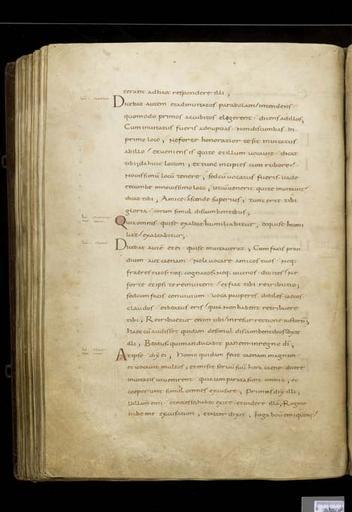 terant ad haec respondere illi,
Dicebat autem et ad inuitatos parabolam intendens
quomodo primos accubitus eligerent dicens ad illos,
Cum inuitatus fueris ad nuptias non discumbas in
primo loco, Ne forte honoratior te sit inuitatus
ab illo et ueniens is qui te et illum uocauit dicat
tibi, da huic locum, et tunc incipies cum rubore
Nouissimū locū tenere, sed cū uocatus fueris uade
recumbe in nouissimo loco, ut cū uenerit qui te inuitauit
dicat tibi, Amice ascende superius, tunc erit tibi
gloria coram simul discumbentibus,
Quia omnis qui se exaltat humiliabitur, et qui se humi
liat exaltabitur,
Dicebat autē et ei qui se inuitauerat, Cum facis pran
dium aut caenam noli uocare amicos tuos neq;
fratres tuos neq; cognatos neq; uicinos diuites Ne
forte et ipsi te reinuitent et fiat tibi retributio,
sed cum facis conuiuium uoca pauperes debiles
claudos et beatus eris quia non habent retribuere
tibi, Retribuetur enim tibi in resurrectione iustorū,
Haec cū audisset quidam de simul discumbentibus dixit
illi, Beatus qui manducabit panem in regno dī,
At ipse dix̄ ei, Homo quidam fecit caenam magnam
et uocauit multos, et misit seruū suū hora caenae dicere
inuitatis ut uenirent quia iam parata sunt omnia, et
coeperunt simul omnes excusare, Primus dix̄ illi,
Uillam emi et necesse habeo exire et uidere illā, Rogo
te habe me excusatum, et alter dixit, Iuga boū emi quinq;